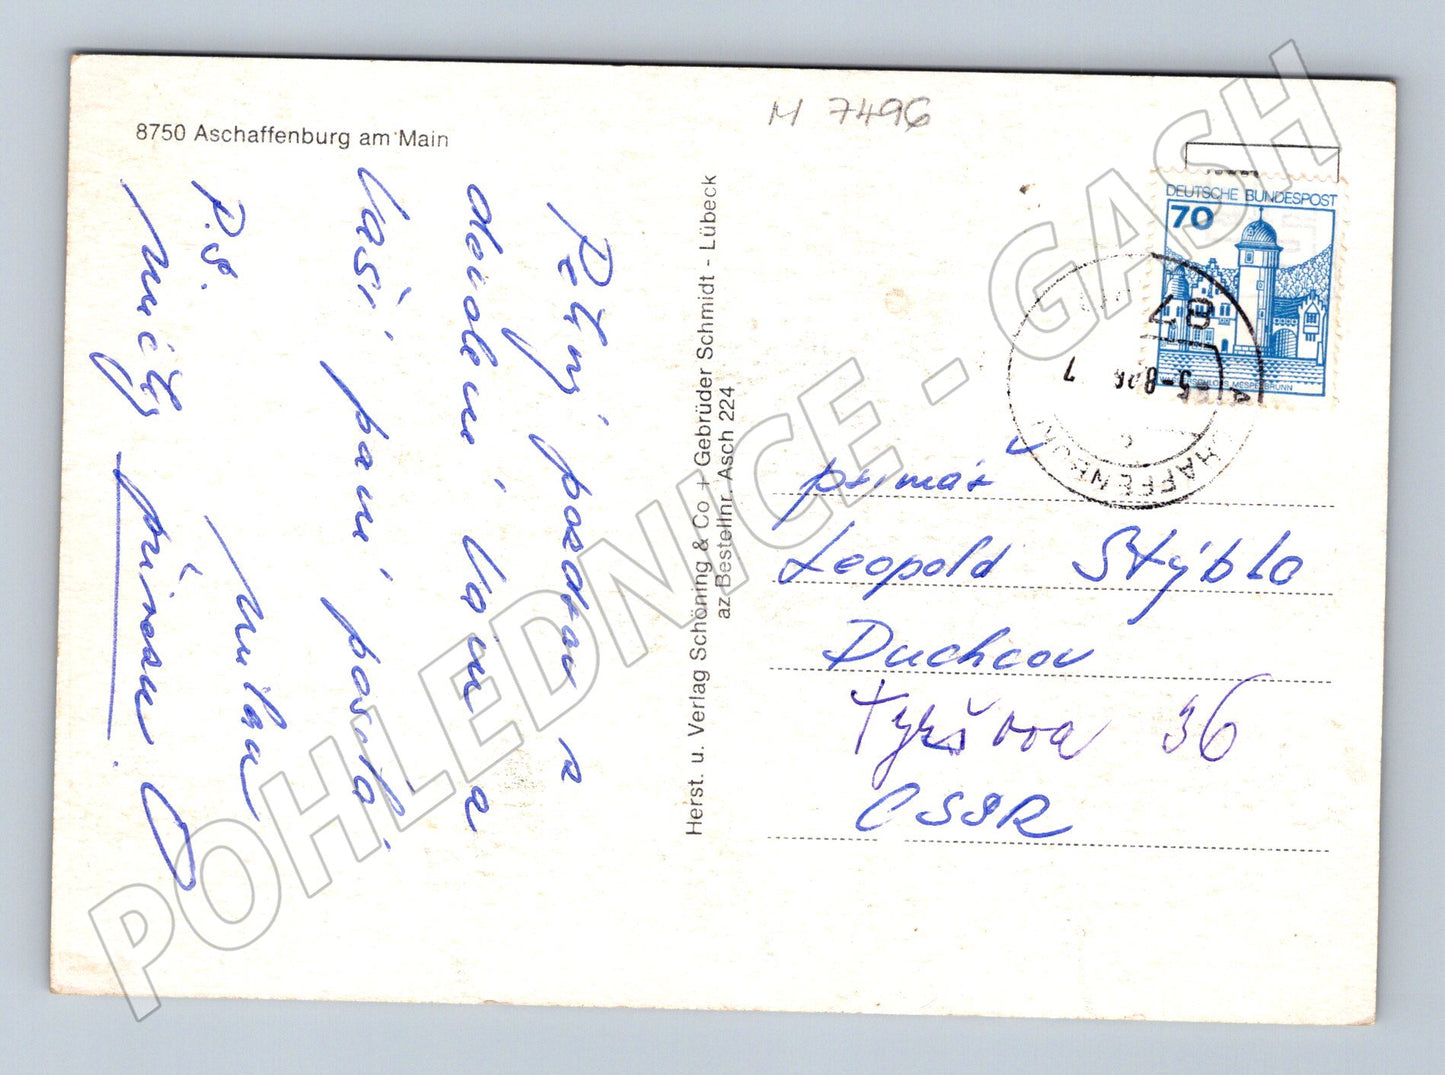 8750 Aschaffenburg am Main
M 7496
Pěkný pozdrav z
dovolené Vám a
Vaší paní posílá
Milan
P.S.
Herst. u. Verlag Schöning & Co + Gebrüder Schmidt - Lübeck
az Bestellnr. Asch 224
DEUTSCHE BUNDESPOST
70
SCHLOSS MESPELBRUNN
87
-5-8
7
primář
Leopold Stýblo
Duchcov
Tyršova 36
ČSSR
POHLEDNICE - GASH